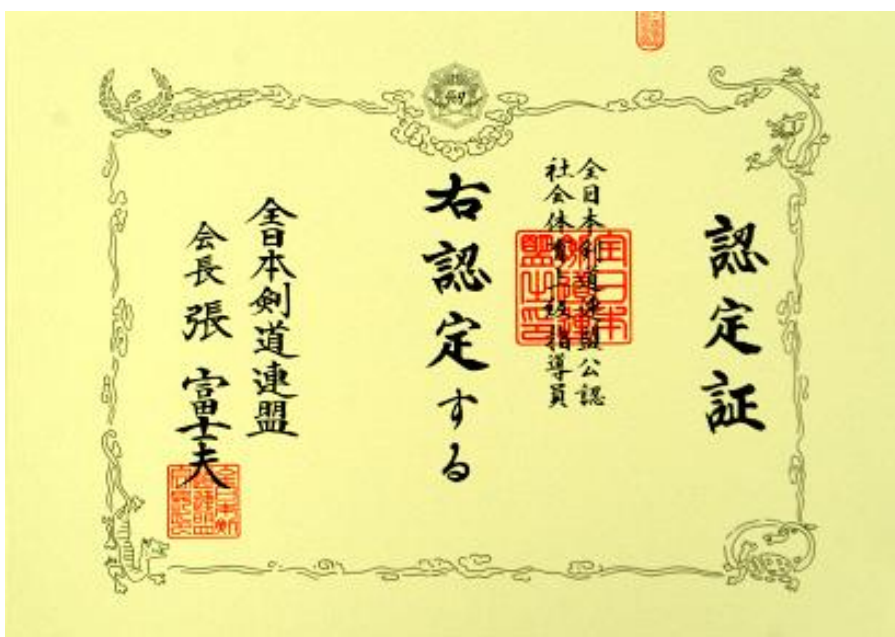 認定証
全日本剣道連盟公認
社会体育上級指導員
右認定する
全日本剣道連盟
会長 張 富士夫